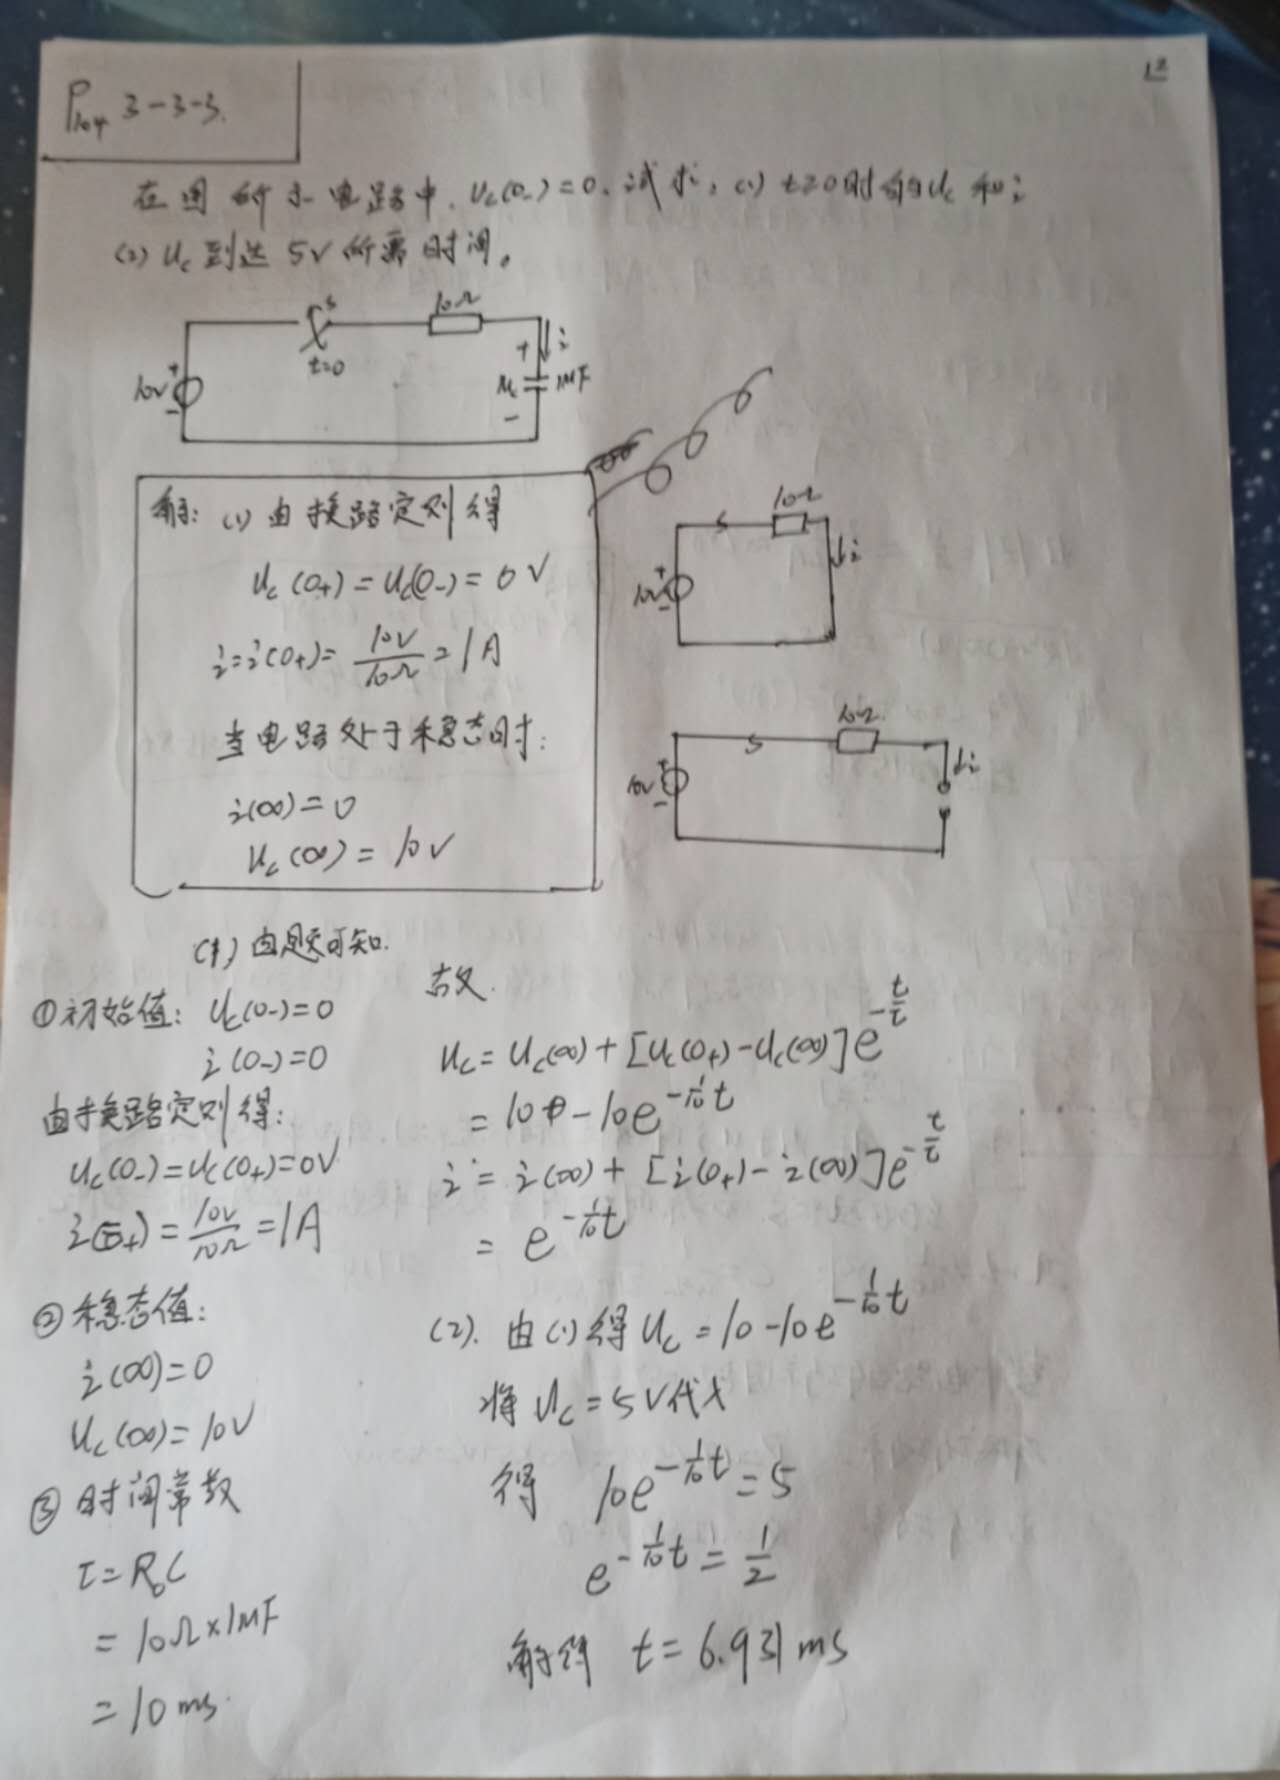 P104 3-3-3.
12
在图所示电路中, Uc(0-)=0, 试求: (1) t≥0时的Uc和i
(2) Uc到达5V所需时间。
S
10Ω
t=0
i
10V
+
-
+
Uc
1MF
-
解: (1) 由换路定则得
Uc(0+)=Uc(0-)=0V
i=i(0+)=10V/10Ω=1A
当电路处于稳态时:
i(∞)=0
Uc(∞)=10V
10Ω
S
i
10V
+
-
10Ω
S
i
10V
+
-
(1) 由题可知.
①初始值: Uc(0-)=0
i(0-)=0
由换路定则得:
Uc(0-)=Uc(0+)=0V
i(0+)=10V/10Ω=1A
②稳态值:
i(∞)=0
Uc(∞)=10V
③时间常数
τ=R0C
=10Ω×1MF
=10ms.
故.
Uc=Uc(∞)+[Uc(0+)-Uc(∞)]e^(-t/τ)
=10-10e^(-1/10 t)
i=i(∞)+[i(0+)-i(∞)]e^(-t/τ)
=e^(-1/10 t)
(2). 由(1)得Uc=10-10e^(-1/10 t)
将Uc=5V代入
得 10e^(-1/10 t)=5
e^(-1/10 t)=1/2
解得 t=6.931ms